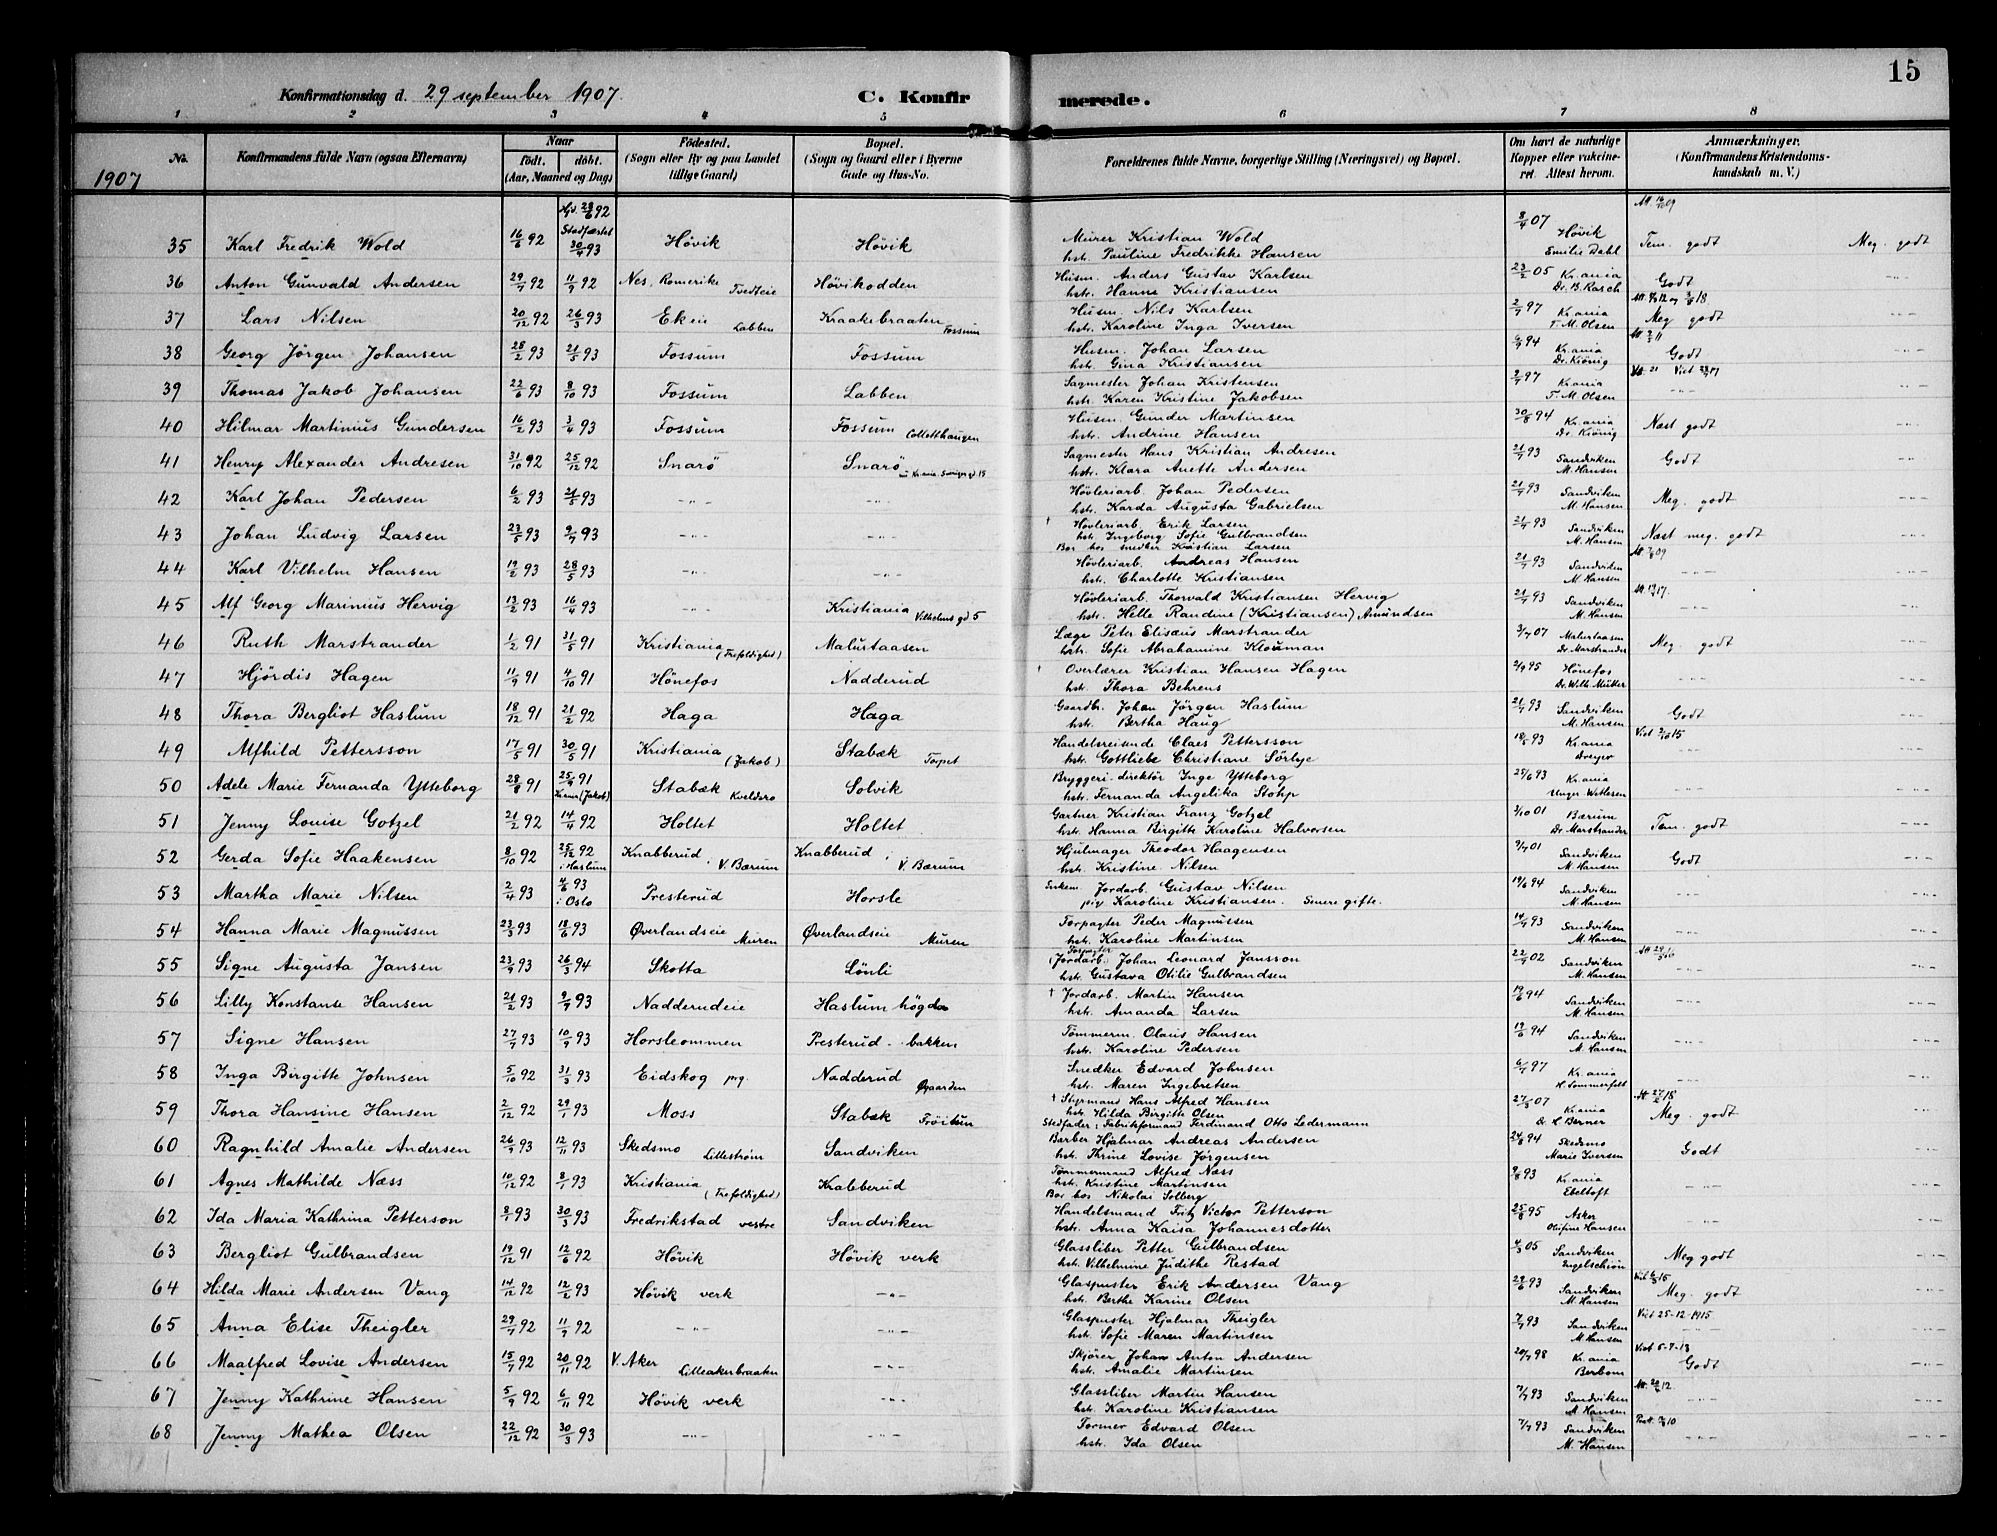 15
Konfirmationsdag d. 29 september 1907. C. Konfirmerede.
1 2 3 4 5 6 7 8
No. Konfirmandens fulde Navn (ogsaa Efternavn) Naar født. døbt. (Aar, Maaned og Dag) Fødested. (Sogn eller By og paa Landet tillige Gaard) Bopæl. (Sogn og Gaard eller i Byerne Gade og Hus-No. Forældrenes fulde Navne, borgerlige Stilling (Næringsvei) og Bopæl. Om havt de naturlige Kopper eller vakcineret. Attest herom. Anmærkninger. (Konfirmandens Kristendomskundskab m. V.)
1907
35 Karl Fredrik Wold 16/6 92 Stadfæstet 30/4 93 Høvik Høvik Murer Kristian Wold hstr. Pauline Fredrikke Hansen 8/4 07 Høvik Emilie Dahl Tem. godt Meg. godt
36 Anton Gunvald Andersen 29/7 92 11/9 92 Nes, Romerike Tvedteie Høvikodden Husm. Anders Gustav Karlsen hstr. Hanna Kristiansen 23/2 05 Kr.ania Dr. B. Rasch Godt -"-
37 Lars Nilsen 20/12 92 26/3 93 Ekeie Labben Kraakebraaten Fossum Husm. Nils Karlsen hstr. Karoline Inga Iversen 2/7 97 Kr.ania T. M. Olsen Meg godt -"-
38 Georg Jörgen Johansen 28/2 93 21/5 93 Fossum Fossum Husm. Johan Larsen hstr. Gina Kristiansen 6/9 94 Kr.ania Dr. Krönig Godt -"-
39 Thomas Jakob Johansen 22/6 93 8/10 93 Fossum Labben Sagmester Johan Kristensen hstr. Karen Kristine Jakobsen 2/7 97 Kr.ania T. M. Olsen -"- -"-
40 Hilmar Martinius Gundersen 16/2 93 3/4 93 Fossum Fossum Colletthaugen Husm. Gunder Martinsen hstr. Andrine Hansen 30/8 94 Kr.ania Dr. Krönig Næst godt -"-
41 Henry Alexander Andresen 31/10 92 25/12 92 Snarø Snarø Sagmester Hans Kristian Andresen hstr. Klara Anette Andersen 21/7 93 Sandviken M. Hansen Godt -"-
42 Karl Johan Pedersen 6/2 93 21/5 93 -"- -"- Høvleriarb. Johan Pedersen hstr. Karda Augusta Gabrielsen 21/7 93 Sandviken M. Hansen Meg. godt -"-
43 Johan Ludvig Larsen 23/5 93 9/7 93 -"- -"- † Høvleriarb. Erik Larsen hstr. Ingeborg Sofie Gulbrandsen Bor hos snedker Kristian Larsen 21/7 93 Sandviken M. Hansen Næst meg. godt -"-
44 Karl Vilhelm Hansen 19/2 93 28/5 93 -"- -"- Høvleriarb. Andreas Hansen hstr. Charlotte Kristiansen 21/7 93 Sandviken M. Hansen -"- -"-
45 Alf Georg Marinius Hervig 13/2 93 16/4 93 -"- Kristiania Vilhelms gd 5 Høvleriarb. Thorvald Kristiansen Hervig hstr. Helle Randine (Kristiansen) Amundsen 21/7 93 Sandviken M. Hansen -"- -"-
46 Ruth Marstrander 1/2 91 31/5 91 Kristiania (Trefoldighed) Malurtaasen Læge Peter Elisæus Marstrander hstr. Sofie Abrahamine Klouman 3/7 07 Malurtaasen Dr. Marstrander Meg. godt -"-
47 Hjördis Hagen 11/9 91 4/10 91 Hönefos Nadderud † Overlærer Kristian Hansen Hagen hstr. Thora Behrens 2/9 95 Hönefos Dr. Wilh. Müller -"- -"-
48 Thora Bergliot Haslum 18/12 91 21/2 92 Haga Haga Gaardbr. Johan Jörgen Haslum hstr. Bertha Haug 21/7 93 Sandviken M. Hansen Godt -"-
49 Alfhild Pettersson 17/5 91 30/5 91 Kristiania (Jakob) Stabæk Torpet Handelsreisende Claes Pettersson hstr. Gottliebe Christiane Sörbye 18/5 93 Kr.ania Dreyer -"- -"-
50 Adele Marie Fernanda Ytteborg 28/8 91 25/9 91 Kr.ania (Jakob) Stabæk Kveldsro Solvik Bryggeri-direktör Inge Ytteborg hstr. Fernanda Angelika Stohp 25/6 93 Kr.ania Unger-Vetlesen -"- -"-
51 Jenny Louise Gotzel 21/2 92 14/4 92 Holtet Holtet Gartner Kristian Franz Gotzel hstr. Hanna Birgitte Karoline Halvorsen 2/10 01 Bærum Dr. Marstrander Tem. godt -"-
52 Gerda Sofie Haakensen 8/10 92 25/12 92 i Haslum Knabberud i V. Bærum Knabberud i V. Bærum Hjulmager Theodor Haagensen hstr. Kristine Nilsen 9/7 01 Sandviken M. Hansen Godt -"-
53 Martha Marie Nilsen 2/4 93 4/6 93 i Oslo Presterud Horsle Enkem. Jordarb. Gustav Nilsen pig Karoline Kristiansen. Senere gifte. 19/6 94 Sandviken M. Hansen -"- -"-
54 Hanna Marie Magnussen 23/3 93 18/6 93 Øverlandseie Muren Øverlandseie Muren Forpagter Peder Magnussen hstr. Karoline Martinsen 14/7 93 Sandviken M. Hansen -"- -"-
55 Signe Augusta Jansen 23/9 93 26/3 94 Skotta Lönli Forpagter (Jordarb.) Johan Leonard Jansson hstr. Gustava Otilie Gulbrandsen 22/7 02 Sandviken M. Hansen -"- -"-
56 Lilly Konstanse Hansen 21/2 93 9/7 93 Nadderudeie Haslum högda † Jordarb. Martin Hansen hstr. Amanda Larsen 19/6 94 Sandviken M. Hansen -"- -"-
57 Signe Hansen 27/7 93 10/9 93 Horsleommen Presterud-bakken Tömmerm. Olaus Hansen hstr. Karoline Pedersen 19/6 94 Sandviken M. Hansen -"- -"-
58 Inga Birgitte Johnsen 5/10 92 31/3 93 Eidskog prg. Nadderud Øgaarden Snedker Edvard Johnsen hstr. Maren Ingebretsen 6/7 97 Kr.ania H. Sommerfelt -"- -"-
59 Thora Hansine Hansen 2/12 92 29/1 93 Moss Stabæk Fröitun † Styrmand Hans Alfred Hansen hstr. Hilda Birgitte Olsen Stedfader: Fabrikformand Ferdinand Otto Ledermann 27/3 07 Kr.ania Dr. H Berner Meg. godt -"-
60 Ragnhild Amalie Andersen 26/9 93 12/11 93 Skedsmo Lilleström Sandviken Barber Hjalmar Andreas Andersen hstr. Thrine Lovise Jörgensen 24/8 94 Skedsmo Marie Iversen Godt -"-
61 Agnes Mathilde Næss 10/12 92 8/1 93 Kristiania (Trefoldighed) Kraleberud Tømmermand Alfred Næss hstr. Kristine Martinsen Bor hos Nikolai Solberg 9/8 93 Kr.ania Ebeltoft -"- -"-
62 Ida Maria Kathrina Petterson 8/1 93 30/3 93 Fredrikstad vestre Sandviken Handelsmand Fritz Victor Petterson hstr. Anna Kaisa Johannesdotter 25/8 95 Asker Olufine Hansen -"- -"-
63 Bergliot Gulbrandsen 19/12 91 12/6 92 Høvik Høvik verk Glassliber Petter Gulbrandsen hstr. Vilhelmine Judithe Restad 4/3 05 Sandviken Engelschiön Meg godt -"-
64 Hilda Marie Andersen Vang 14/12 92 12/2 93 Høvik verk -"- Glaspuster Erik Andersen Vang hstr. Berthe Karine Olsen 29/6 93 Sandviken M. Hansen Meg. godt -"-
65 Anna Elise Theigler 29/7 92 11/9 92 -"- -"- Glaspuster Hjalmar Theigler hstr. Sofie Maren Martinsen 7/7 93 Sandviken M. Hansen Viet 25-12-1915 -"- -"-
66 Maalfred Lovise Andersen 15/7 92 20/11 92 V. Aker Lilleakerbraaten -"- Skjærer Johan Anton Andersen hstr. Amalie Martinsen 20/7 98 Kr.ania Berbom Godt -"-
67 Jenny Kathrine Hansen 5/9 92 6/11 92 Høvik verk -"- Glassliber Martin Hansen hstr. Karoline Kristiansen 7/7 93 Sandviken M. Hansen -"- -"-
68 Jenny Mathea Olsen 22/12 92 30/3 93 -"- -"- Former Edvard Olsen hstr. Ida Olsen 7/7 93 Sandviken M. Hansen -"- -"-